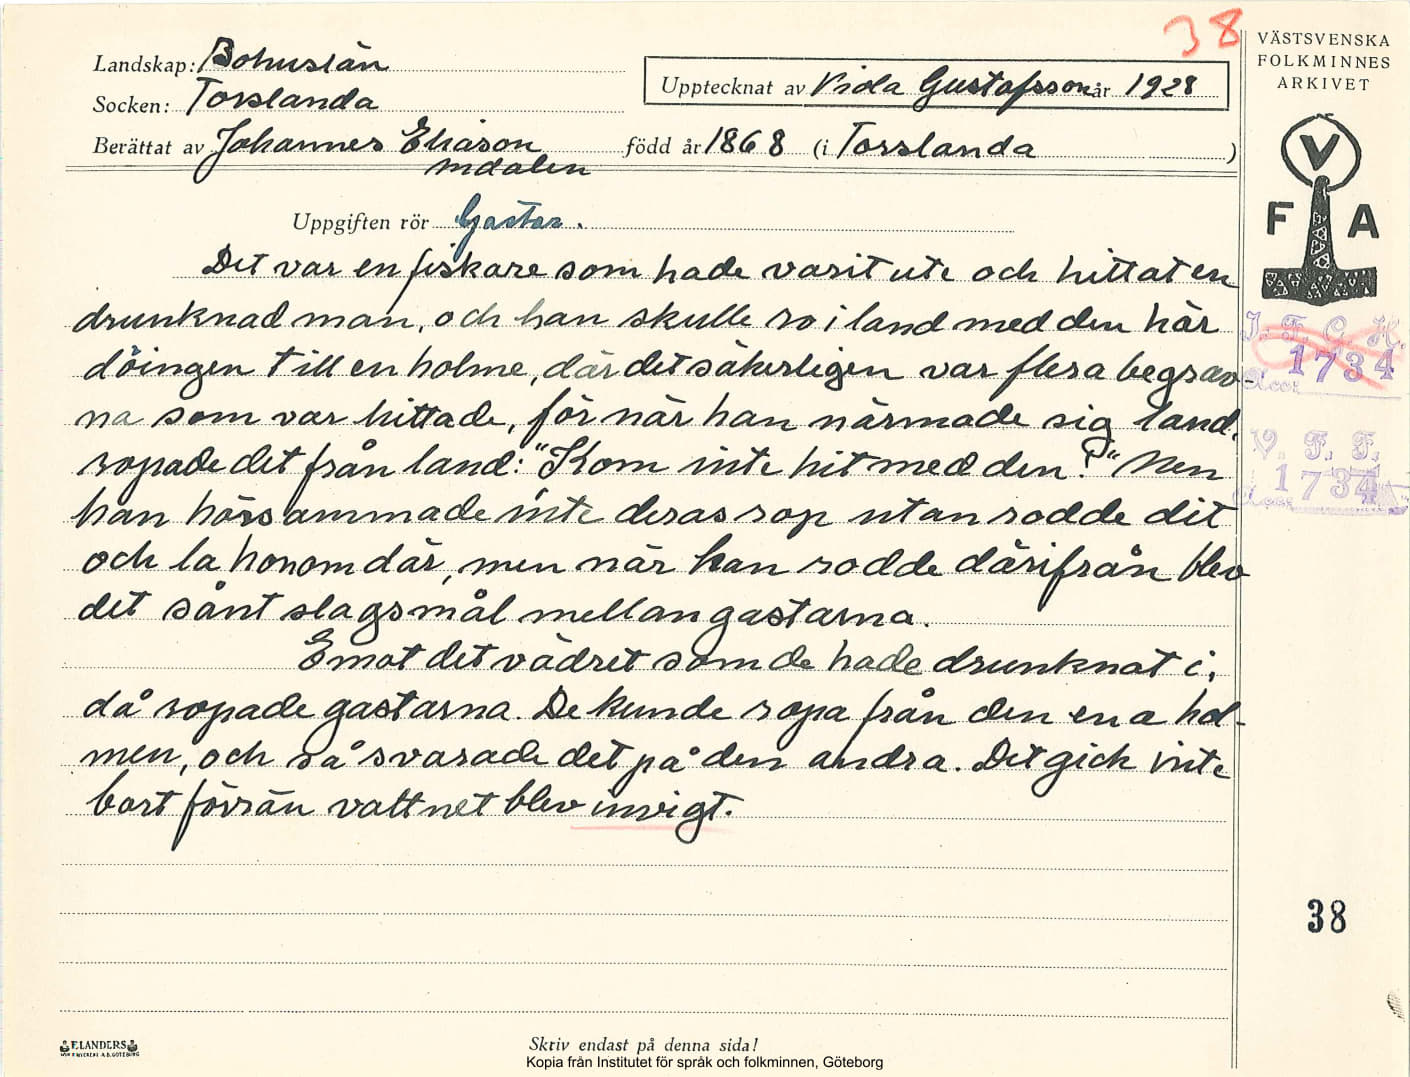 38
VÄSTSVENSKA
FOLKMINNES
ARKIVET
Landskap: Bohuslän
Upptecknat av Viola Gustafsson år 1928
Socken: Torslanda
Berättat av Johannes Eliason född år 1868 (i Torslanda )
V
F A
Uppgiften rör Gastar.
Det var en fiskare som hade varit ute och hittat en
drunknad man, och han skulle ro i land med den här
döingen till en holme, där det säkerligen var flera begrav-
na som var hittade, för när han närmade sig land,
ropade det från land: "Kom inte hit med den!" Men
han hörsammade inte deras rop utan rodde dit
och la honom där, men när han rodde därifrån blev
det sånt slagsmål mellan gastarna.
Emot det vädret som de hade drunknat i,
då ropade gastarna. De kunde ropa från den ena hol-
men, och så svarade det på den andra. Det gick inte
bort förrän vattnet blev invigt.
I. F. G. H.
Acc: 1734
V. F. F.
Acc: 1734
38
ELANDERS
Skriv endast på denna sida!
Kopia från Institutet för språk och folkminnen, Göteborg